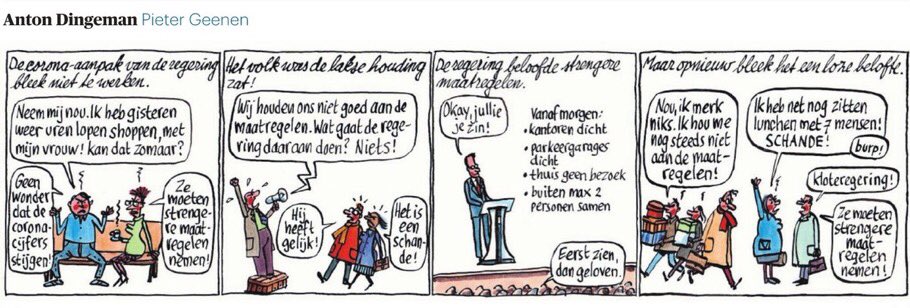 Anton Dingeman Pieter Geenen
De corona-aanpak van de regering
bleek niet te werken.
Neem mij nou. Ik heb gisteren
weer uren lopen shoppen, met
mijn vrouw! Kan dat zomaar?
Geen
wonder
dat de
corona-
cijfers
stijgen!
Ze
moeten
strenge-
re maat-
regelen
nemen!
Het volk was de lakse houding
zat!
Wij houden ons niet goed aan de
maatregelen. Wat gaat de rege-
ring daaraan doen? Niets!
Hij
heeft
gelijk!
Het is
een
schan-
de!
De regering beloofde strengere
maatregelen.
Okay, jullie
je zin!
Vanaf morgen:
• kantoren dicht
• parkeergarages
dicht
• thuis geen bezoek
• buiten max 2
personen samen
Eerst zien,
dan geloven.
Maar opnieuw bleek het een loze belofte.
Nou, ik merk
niks. Ik hou me
nog steeds niet
aan de maat-
regelen!
Ik heb net nog zitten
lunchen met 7 mensen!
SCHANDE!
burp!
Kloteregering!
Ze moeten
strengere
maat-
regelen
nemen!